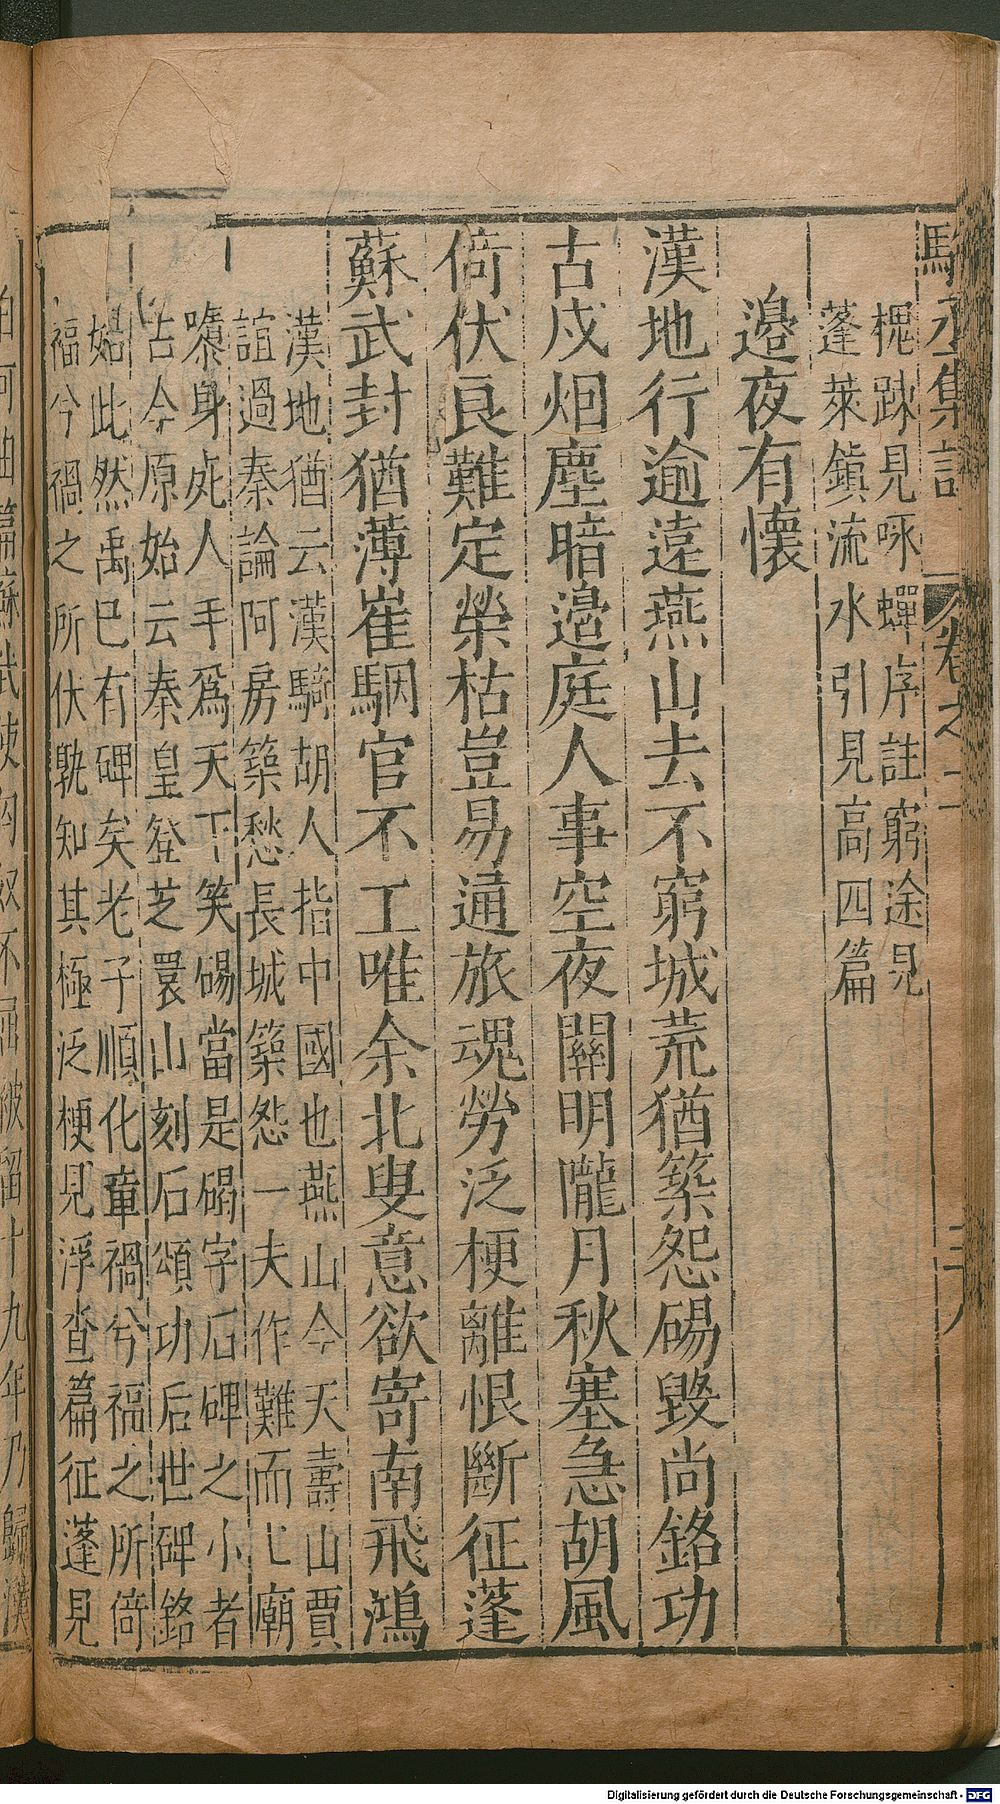 駱丞集註 卷之二 三八
槐踈見咏蟬序註窮途見
蓬萊鎮流水引見高四篇
邉夜有懷
漢地行逾遠燕山去不窮城荒猶築怨碣毀尚銘功
古戍烟塵暗邉庭人事空夜關明隴月秋塞急胡風
倚伏良難定榮枯豈易通旅魂勞泛梗離恨斷征蓬
蘇武封猶薄崔駰官不工唯余北叟意欲寄南飛鴻
漢地猶云漢騎胡人指中國也燕山今天壽山賈
誼過秦論阿房築愁長城築怨一夫作難而七廟
隳身死人手爲天下笑碣當是碣字石碑之小者
古今原始云秦皇登芝罘山刻石頌功后世碑銘
始此然禹巳有碑矣老子順化章禍兮福之所倚
福兮禍之所伏孰知其極泛梗見浮查篇征蓬見
泊河曲篇蘇武使匈奴不屈被留十九年乃歸漢